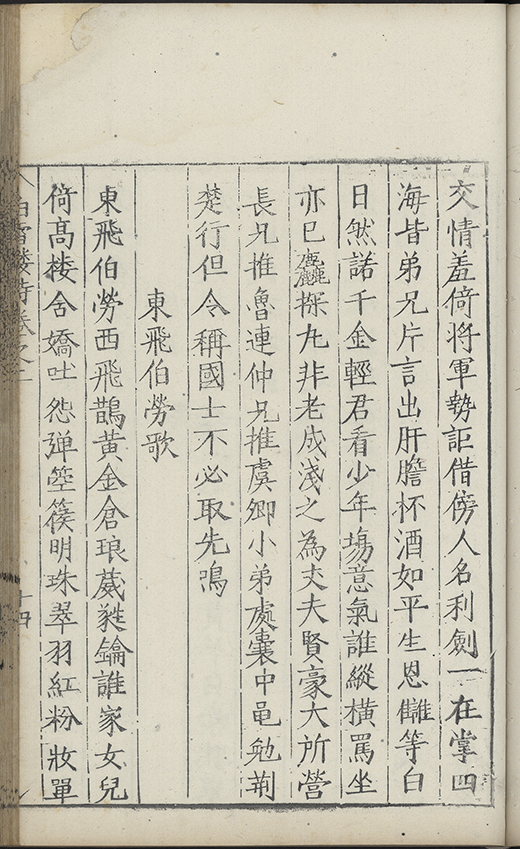 交情羞倚將軍勢詎借傍人名利劍一在掌四
海皆弟兄片言出肝膽杯酒如平生恩讎等白
日然諾千金輕君看少年場意氣誰縱橫罵坐
亦已麤探丸非老成淺之為丈夫賢豪大所營
長兄推魯連仲兄推虞卿小弟處囊中黽勉荊
楚行但令稱國士不必取先鳴
東飛伯勞歌
東飛伯勞西飛鵲黃金倉琅葳蕤鑰誰家女兒
倚高樓含嬌吐怨彈箜篌明珠翠羽紅粉妝單
白雪樓詩卷之二
十四